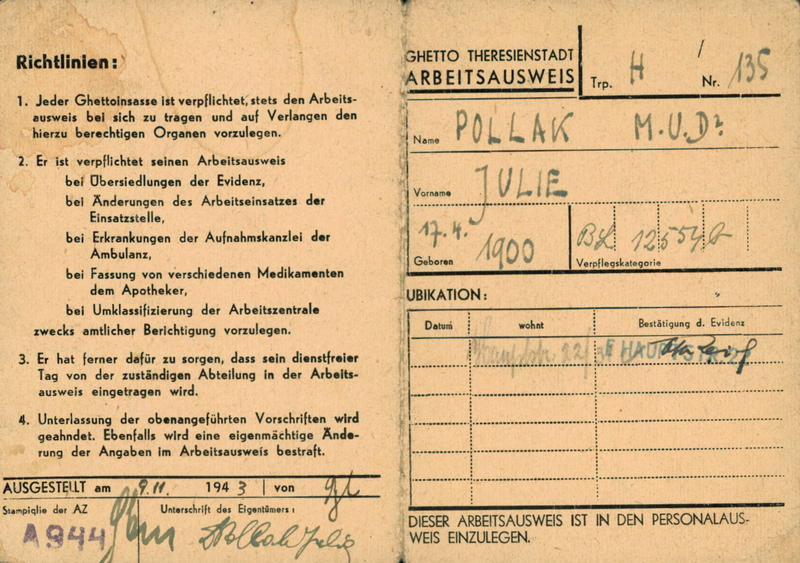 Richtlinien:
1. Jeder Ghettoinsasse ist verpflichtet, stets den Arbeits-
ausweis bei sich zu tragen und auf Verlangen den
hierzu berechtigen Organen vorzulegen.
2. Er ist verpflichtet seinen Arbeitsausweis
bei Übersiedlungen der Evidenz,
bei Änderungen des Arbeitseinsatzes der
Einsatzstelle,
bei Erkrankungen der Aufnahmskanzlei der
Ambulanz,
bei Fassung von verschiedenen Medikamenten
dem Apotheker,
bei Umklassifizierung der Arbeitszentrale
zwecks amtlicher Berichtigung vorzulegen.
3. Er hat ferner dafür zu sorgen, dass sein dienstfreier
Tag von der zuständigen Abteilung in der Arbeits-
ausweis eingetragen wird.
4. Unterlassung der obenangeführten Vorschriften wird
geahndet. Ebenfalls wird eine eigenmächtige Ände-
rung der Angaben im Arbeitsausweis bestraft.
AUSGESTELLT am 9.11. 1943 von
Stampiglie der AZ Unterschrift des Eigentümers:
A944 Pollak Julie
GHETTO THERESIENSTADT
ARBEITSAUSWEIS Trp. H / Nr. 135
Name POLLAK M.U.Dr.
Vorname JULIE
Geboren 17.4. 1900 Verpflegskategorie
UBIKATION:
Datum wohnt Bestätigung d. Evidenz
22/
DIESER ARBEITSAUSWEIS IST IN DEN PERSONALAUS-
WEIS EINZULEGEN.